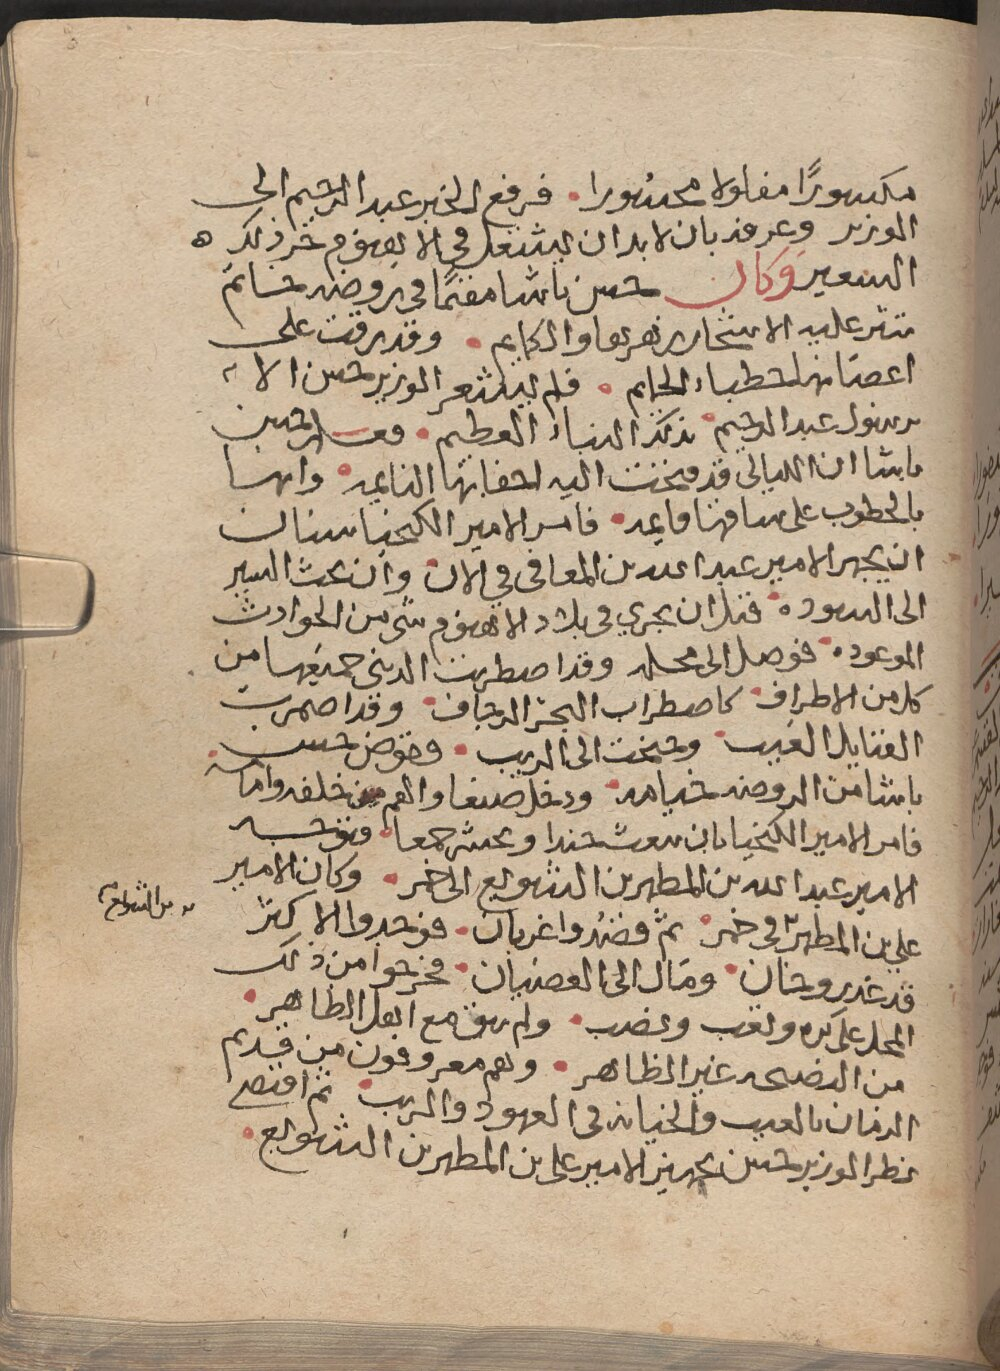 مكسورًا مفلولا محسورا • فرفع الخبر عبد الرحيم الى
الوزير وعرفه بان لابد ان يشتعل في الاهنوم خر ذلك ه
السعير وكان حسن باشا مقيمًا في روضه حاتم
تنثر عليه الاشجار زهرها والكمايم • وقد رقت على
اغصانها خطباء الحمايم • فلم يشعر الوزير حسن الا
برسول عبد الرحيم • بذلك النباء العظيم • فعلم حسن
باشا ان الليالي قد فتحت اليه اجفانها النايمه • وانها
بالخطوب على ساقها قايمه • فامر الامير الكيخيا سنان
ان يجهز الامير عبد الله بن المعافى في الان وان يحث السير
الى السوده • قبل ان يجري في بلاد الاهنوم شي من الحوادث
الموعوده • فوصل الى محله وقد اضطربت الدنيا جميعها من
كل من الاطراف • كاضطراب البحر الرجاف • وقد اضمرت
القبايل العيب • وجنحت الى الريب • فقوض حسن
باشا من الروضه خيامه • ودخل صنعا والهم من خلفه وامامه •
فامر الامير الكيخيا بان يبعث جندا ويحشر جمعا • وتوجه
الامير عبد الله بن المطهر بن الشويع الى خمر • وكان الامير
علي بن المطهر في خمر • ثم قصدوا غربان • فوجدوا الاكثر
بن الشويع
قد غدر وخان • ومال الى العصيان • فخرجوا من ذلك
المحل على كره وتعب وغضب • ولم يبق مع اهل الظاهر •
من النصيحه غير الظاهر • وهم معروفون من قديم
الزمان بالعيب والخيانه في العهود والريب • ثم اقتضى
نظر الوزير حسن تجهيز الامير علي بن المطهر بن الشويع •